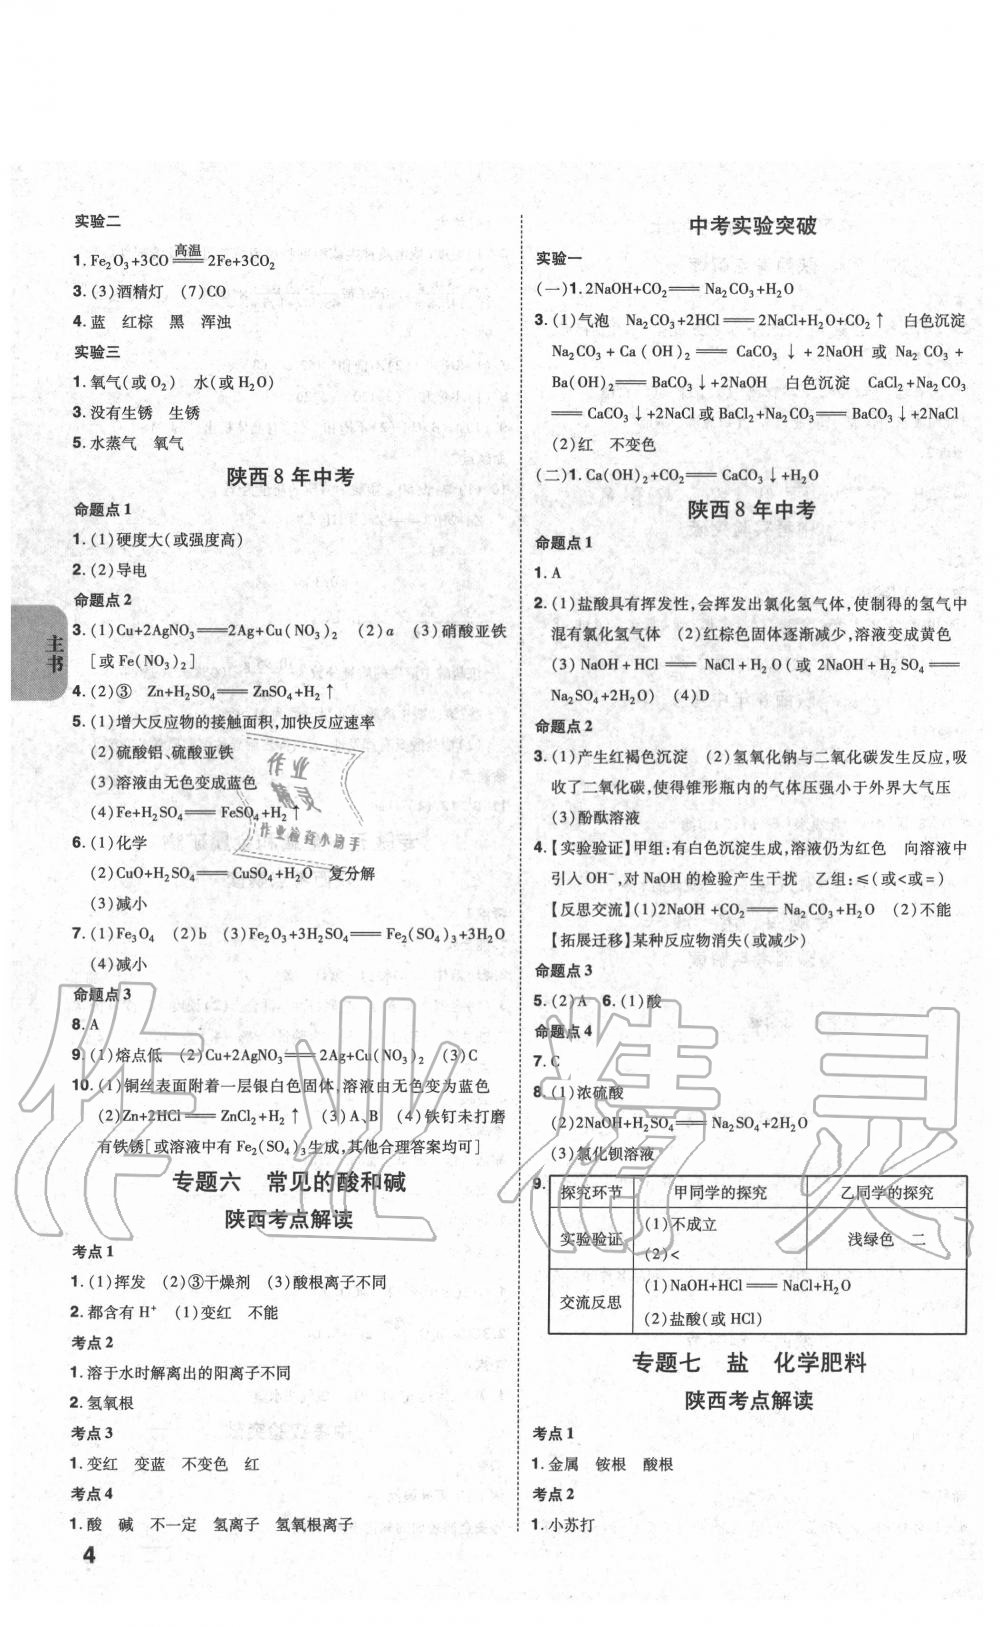 实验二
1. Fe₂O₃+3CO 高温═══ 2Fe+3CO₂
3. (3)酒精灯 (7)CO
4. 蓝 红棕 黑 浑浊
实验三
1. 氧气(或O₂) 水(或H₂O)
3. 没有生锈 生锈
5. 水蒸气 氧气
陕西8年中考
命题点1
1. (1)硬度大(或强度高)
2. (2)导电
命题点2
3. (1)Cu+2AgNO₃═══2Ag+Cu(NO₃)₂ (2)a (3)硝酸亚铁
[或Fe(NO₃)₂]
4. (2)③ Zn+H₂SO₄═══ZnSO₄+H₂↑
5. (1)增大反应物的接触面积,加快反应速率
(2)硫酸铝、硫酸亚铁
(3)溶液由无色变成蓝色
(4)Fe+H₂SO₄═══FeSO₄+H₂↑
6. (1)化学
(2)CuO+H₂SO₄═══CuSO₄+H₂O 复分解
(3)减小
7. (1)Fe₃O₄ (2)b (3)Fe₂O₃+3H₂SO₄═══Fe₂(SO₄)₃+3H₂O
(4)减小
命题点3
8. A
9. (1)熔点低 (2)Cu+2AgNO₃═══2Ag+Cu(NO₃)₂ (3)C
10. (1)铜丝表面附着一层银白色固体,溶液由无色变为蓝色
(2)Zn+2HCl═══ZnCl₂+H₂↑ (3)A、B (4)铁钉未打磨
有铁锈[或溶液中有Fe₂(SO₄)₃生成,其他合理答案均可]
专题六 常见的酸和碱
陕西考点解读
考点1
1. (1)挥发 (2)③干燥剂 (3)酸根离子不同
2. 都含有H⁺ (1)变红 不能
考点2
1. 溶于水时解离出的阳离子不同
2. 氢氧根
考点3
1. 变红 变蓝 不变色 红
考点4
1. 酸 碱 不一定 氢离子 氢氧根离子
4
主书
中考实验突破
实验一
(一)1. 2NaOH+CO₂═══Na₂CO₃+H₂O
3. (1)气泡 Na₂CO₃+2HCl═══2NaCl+H₂O+CO₂↑ 白色沉淀
Na₂CO₃+Ca(OH)₂═══CaCO₃↓+2NaOH 或 Na₂CO₃+
Ba(OH)₂═══BaCO₃↓+2NaOH 白色沉淀 CaCl₂+Na₂CO₃
═══CaCO₃↓+2NaCl或BaCl₂+Na₂CO₃═══BaCO₃↓+2NaCl
(2)红 不变色
(二)1. Ca(OH)₂+CO₂═══CaCO₃↓+H₂O
陕西8年中考
命题点1
1. A
2. (1)盐酸具有挥发性,会挥发出氯化氢气体,使制得的氢气中
混有氯化氢气体 (2)红棕色固体逐渐减少,溶液变成黄色
(3)NaOH+HCl═══NaCl+H₂O(或2NaOH+H₂SO₄═══
Na₂SO₄+2H₂O) (4)D
命题点2
3. (1)产生红褐色沉淀 (2)氢氧化钠与二氧化碳发生反应,吸
收了二氧化碳,使得锥形瓶内的气体压强小于外界大气压
(3)酚酞溶液
4. 【实验验证】甲组:有白色沉淀生成,溶液仍为红色 向溶液中
引入OH⁻,对NaOH的检验产生干扰 乙组:≤(或<或=)
【反思交流】(1)2NaOH+CO₂═══Na₂CO₃+H₂O (2)不能
【拓展迁移】某种反应物消失(或减少)
命题点3
5. (2)A 6. (1)酸
命题点4
7. C
8. (1)浓硫酸
(2)2NaOH+H₂SO₄═══Na₂SO₄+2H₂O
(3)氯化钡溶液
9. 探究环节 甲同学的探究 乙同学的探究
实验验证 (1)不成立 (2)< 浅绿色 二
交流反思 (1)NaOH+HCl═══NaCl+H₂O
(2)盐酸(或HCl)
专题七 盐 化学肥料
陕西考点解读
考点1
1. 金属 铵根 酸根
考点2
1. 小苏打
作业精灵
作业检查小助手
作业精灵